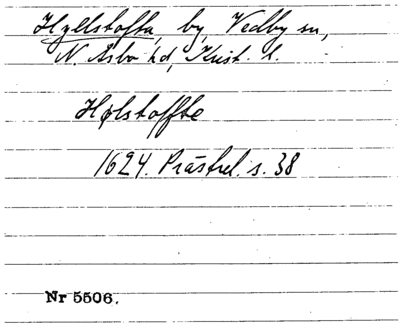 Hyllstofta, by, Vedby sn,
N. Åsbo hd, Krist. l.
Hølstoffte
1624. Prästrel. s. 38
Nr 5506.